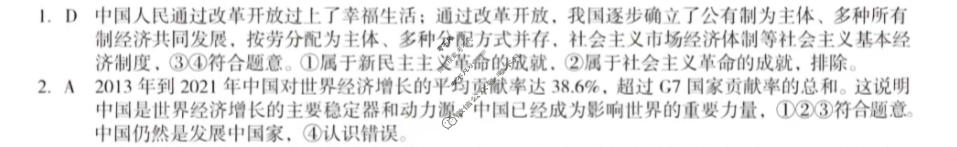 1. D 中国人民通过改革开放过上了幸福生活；通过改革开放，我国逐步确立了公有制为主体、多种所有
制经济共同发展，按劳分配为主体、多种分配方式并存，社会主义市场经济体制等社会主义基本经
济制度，③④符合题意。①属于新民主主义革命的成就，②属于社会主义革命的成就，排除。
2. A 2013年到2021年中国对世界经济增长的平均贡献率达38.6%，超过G7国家贡献率的总和。这说明
中国是世界经济增长的主要稳定器和动力源，中国已经成为影响世界的重要力量，①②③符合题意。
中国仍然是发展中国家，④认识错误。